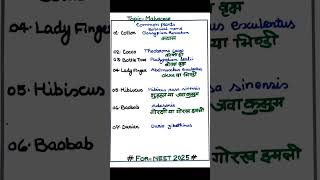 Topic- Malvaceae
Common plants
Botanical name
01- Cotton Gossypium
कपास
02- Cocoa Theobroma cacao
03- Bottle Tree
04- Lady Finger Abelmoschus esculentus
या भिण्डी
05- Hibiscus Hibiscus rosa sinensis
गुड़हल या जवा कुसुम
06- Baobab Adansonia
गोरखी या गोरख इमली
07- Durian Durio zibethinus
# For- NEST 2025 #
04- Lady Finger
esculentus
या भिण्डी
05- Hibiscus
sa sinensis
जवा कुसुम
06- Baobab
गोरख इमली